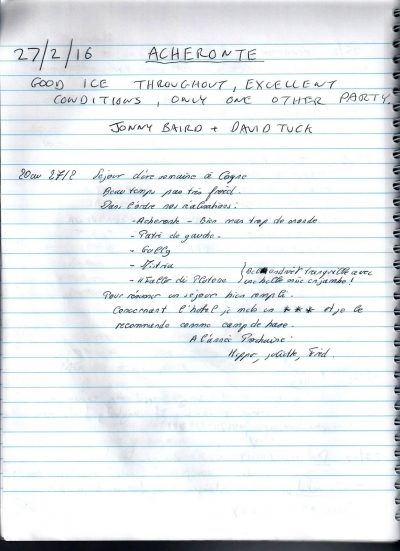 27/2/16 ACHERONTE
GOOD ICE THROUGHOUT, EXCELLENT
CONDITIONS, ONLY ONE OTHER PARTY.
JONNY BAIRD + DAVID TUCK
20 au 27/2 Séjour d'une semaine à Cogne
Beau temps pas très froid.
Dans l'ordre nos réalisations:
- Acheronte - Bien mais trop de monde
- Patri de gauche.
- Gully
-
- de Plutone tranquille avec
une belle
Pour résumer un séjour bien rempli.
Concernant l'hôtel je mets un *** et je le
recommande comme camp de base.
A l'année Prochaine!
Hippo, Juliette, Fred.